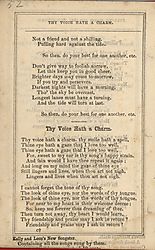 THY VOICE HATH A CHARM.
Not a friend and not a shilling,
Pulling hard against the tide.
So then, do your best for one another, etc.
Don't give way to foolish sorrow,
Let this keep you in good cheer,
Brighter days may come to-morrow
If you try and persevere.
Darkest nights will have a morning,
Tho' the sky be overcast,
Longest lanes must have a turning,
And the tide will turn at last.
So then, do your best for one another, etc.
Thy Voice Hath a Charm.
Thy voice hath a charm, thy smile hath a spell,
Thine eye hath a gaze that I love too well,
Thine eye hath a gaze that I love too well;
For, sweet to my ear is thy song's happy strain,
And this would I have thee repeat it again
And long on my mind the gaze of thine eye
Still lingers and lives, when thou art not nigh,
Lingers and lives when thou art not nigh.
I cannot forget the tone of thy song,
The look of thine eye, nor the words of thy tongue,
The look of thine eye, nor the words of thy tongue,
For near to my heart is their
So; keep me forever
Then turn not away, thy heart I would learn,
Thy friendship and praise may I ask in return?
Friendship and praise may I ask in return?
Containing all the songs sung by them.